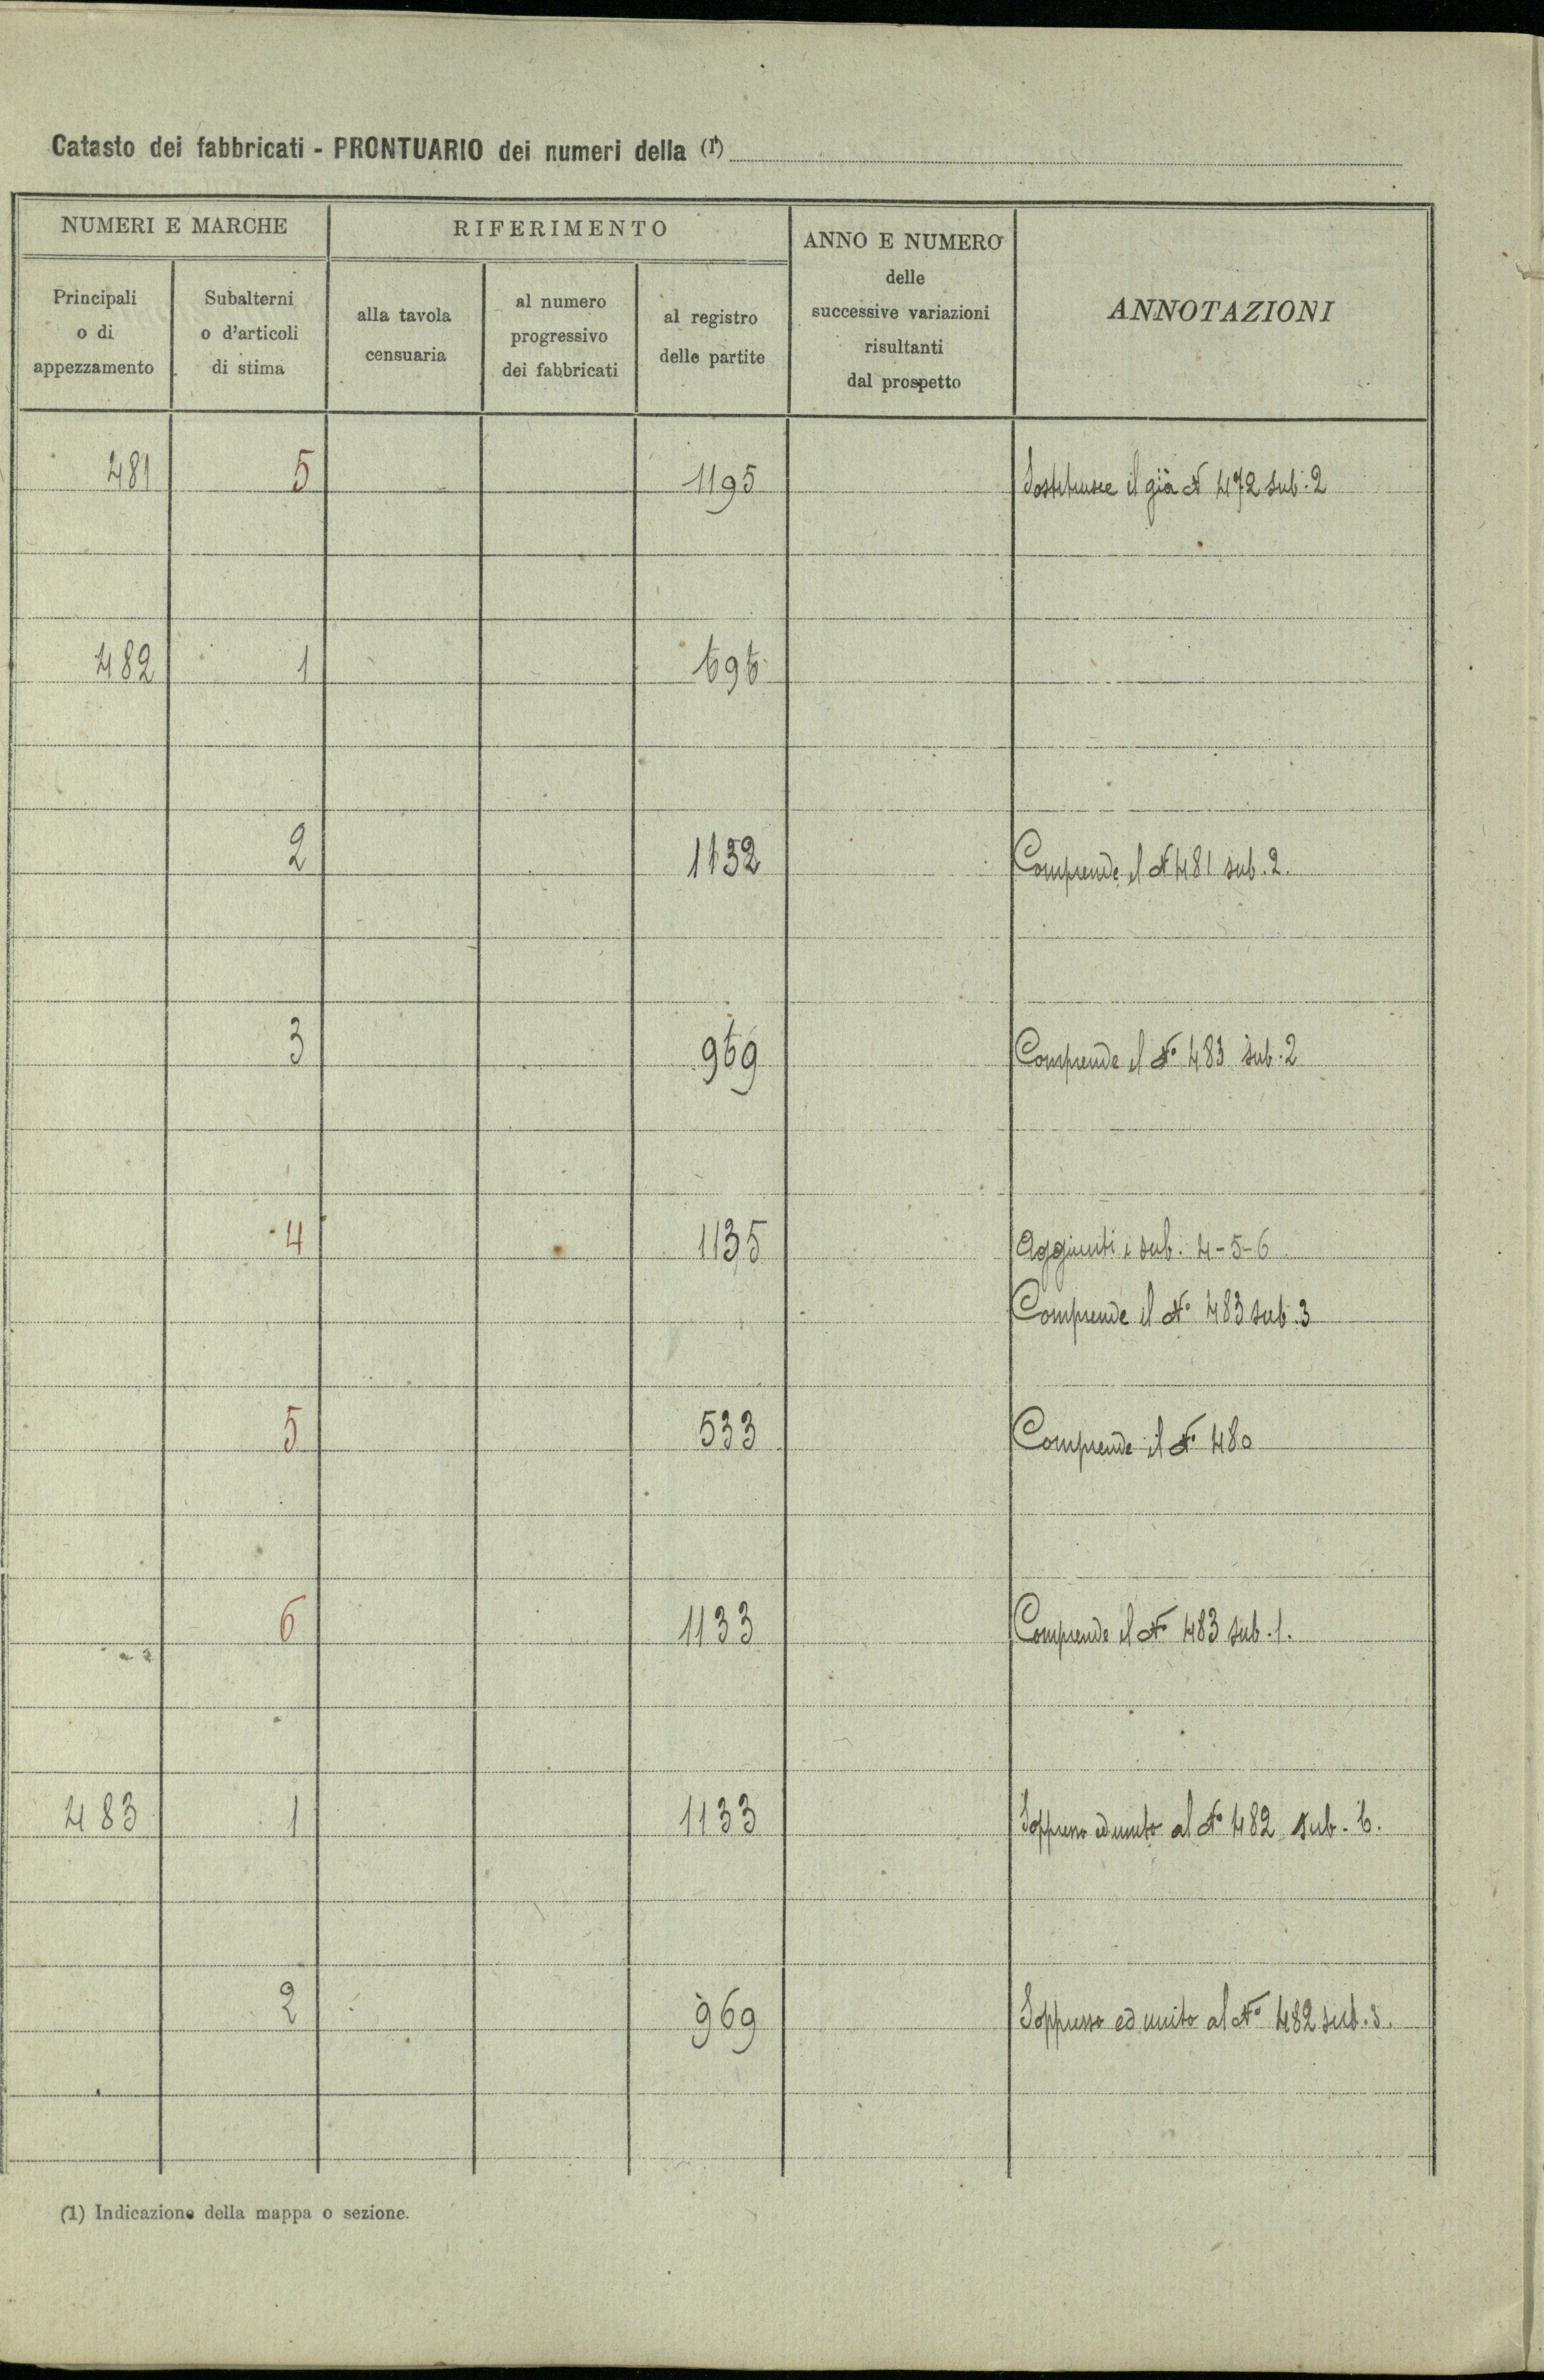 Catasto dei fabbricati - PRONTUARIO dei numeri della (1)
NUMERI E MARCHE
RIFERIMENTO
ANNO E NUMERO
delle
successive variazioni
risultanti
dal prospetto
ANNOTAZIONI
Principali
o di
appezzamento
Subalterni
o d'articoli
di stima
alla tavola
censuaria
al numero
progressivo
dei fabbricati
al registro
delle partite
481 5 1195 Sostituisce il già N 472 sub. 2
482 1 696
2 1132 Comprende il N 481 sub. 2.
3 969 Comprende il N° 483 sub. 2
4 1135 Aggiunti i sub. 4-5-6
Comprende il N° 483 sub. 3
5 533 Comprende il N° 480
6 1133 Comprende il N° 483 sub. 1.
483 1 1133 Soppresso ed unito al N° 482 sub. 6.
2 969 Soppresso ed unito al N° 482 sub. 3.
(1) Indicazione della mappa o sezione.